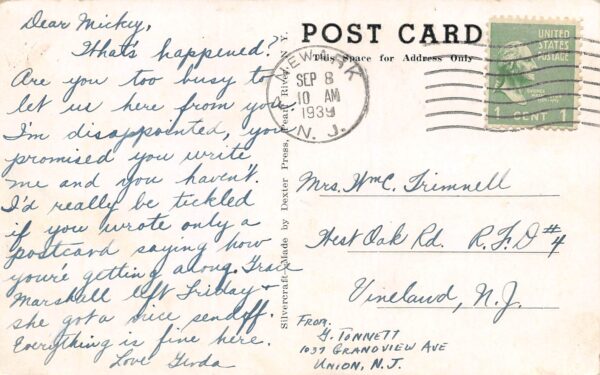 Dear Mickey,
What's happened?
Are you too busy to
let us here from you.
I'm disappointed, you
promised you write
me and you haven't.
I'd really be tickled
if you wrote only a
postcard saying how
you're getting along. Grace
Marshall left Friday &
she got a nice sendoff.
Everything is fine here.
Love Gerda
Silvercraft—Made by Dexter Press, Pearl River, N. Y.
POST CARD
This Space for Address Only
NEWARK
SEP 8
10 AM
1939
N. J.
UNITED
STATES
POSTAGE
1 CENT 1
Mrs. Wm C. Trimnell
West Oak Rd. R.F.D #4
Vineland, N.J.
FROM.
G. TONNETT
1037 GRANDVIEW AVE
UNION, N.J.